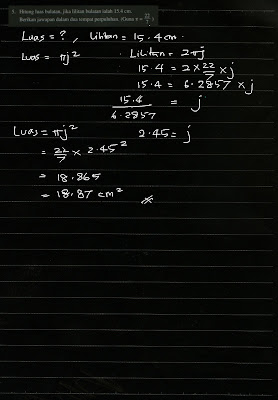 1. Hitung luas bulatan, jika lilitan bulatan ialah 15.4 cm.
Berikan jawapan dalam dua tempat perpuluhan. (Guna π = 22/7)
Luas = ? , Lilitan = 15.4 cm.
Luas = πj²
Lilitan = 2πj
15.4 = 2 × 22/7 × j
15.4 = 6.2857 × j
15.4/6.2857 = j
2.45 = j
Luas = πj²
= 22/7 × 2.45²
= 18.865
= 18.87 cm²